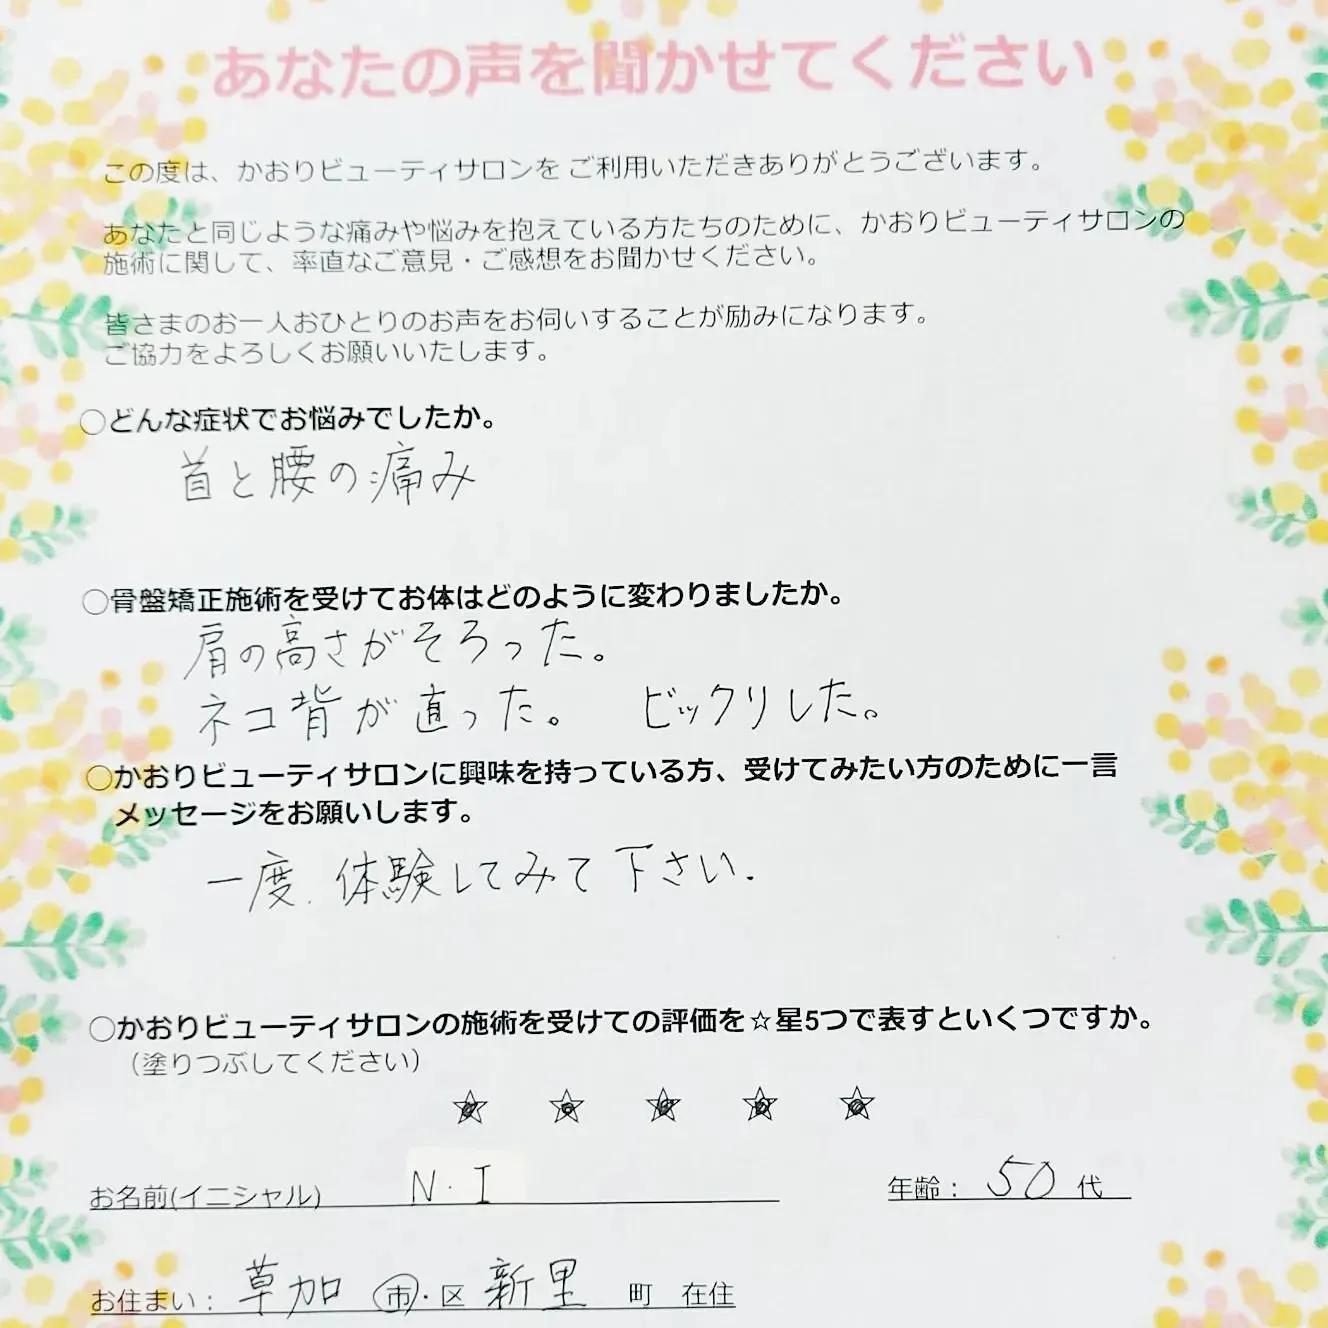 あなたの声を聞かせてください
この度は、かおりビューティサロンをご利用いただきありがとうございます。
あなたと同じような痛みや悩みを抱えている方たちのために、かおりビューティサロンの
施術に関して、率直なご意見・ご感想をお聞かせください。
皆さまのお一人おひとりのお声をお伺いすることが励みになります。
ご協力をよろしくお願いいたします。
○どんな症状でお悩みでしたか。
首と腰の痛み
○骨盤矯正施術を受けてお体はどのように変わりましたか。
肩の高さがそろった。
ネコ背が直った。 ビックリした。
○かおりビューティサロンに興味を持っている方、受けてみたい方のために一言
メッセージをお願いします。
一度、体験してみて下さい.
○かおりビューティサロンの施術を受けての評価を☆星5つで表すといくつですか。
（塗りつぶしてください）
★ ★ ★ ★ ★
お名前(イニシャル) N・I 年齢： 50 代
お住まい： 草加 市・区 新里 町 在住